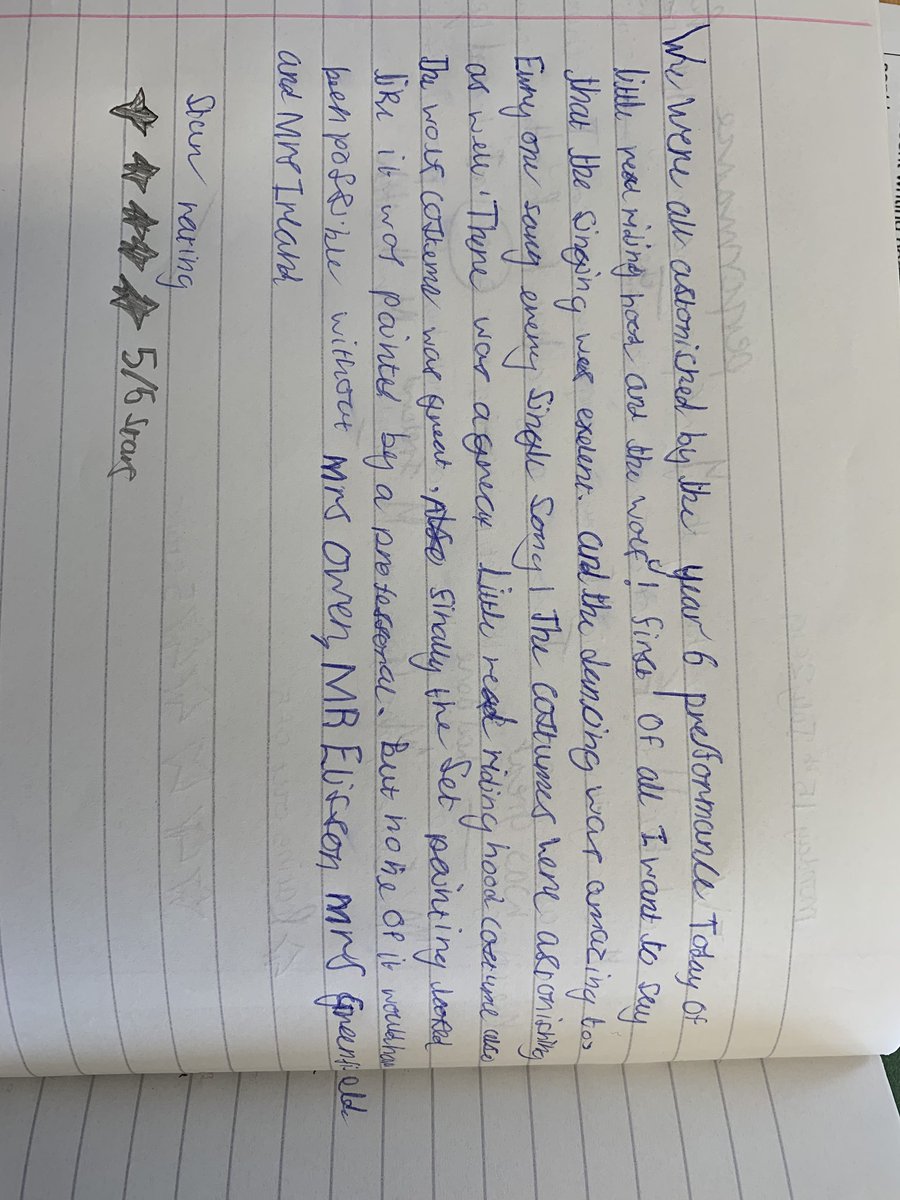 We were all astonished by the year 6 preformance Today of
little read riding hood and the wolf! first of all I want to say
that the singing was exelent. and the dancing was amazing too
Every one sang every single song! The costumes were astonishing
as well! There was a great Little read riding hood costume also
The wolf costume was great. finally the set painting looked
like it was painted by a professional. But none of it would have
been possible without Mrs Owen, MR Ellison Mrs Greenfield
and Mrs Ireland
Star rating
5/5 stars